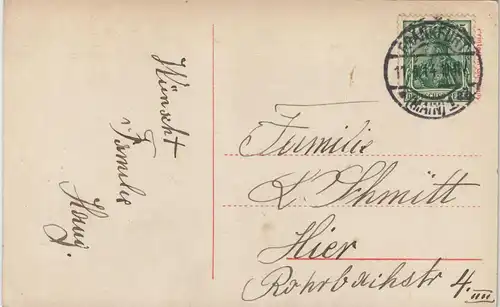 Wünscht
Familie
FRANKFURT
Familie
L. Schmitt
Hier
Rohrbachstr 4.